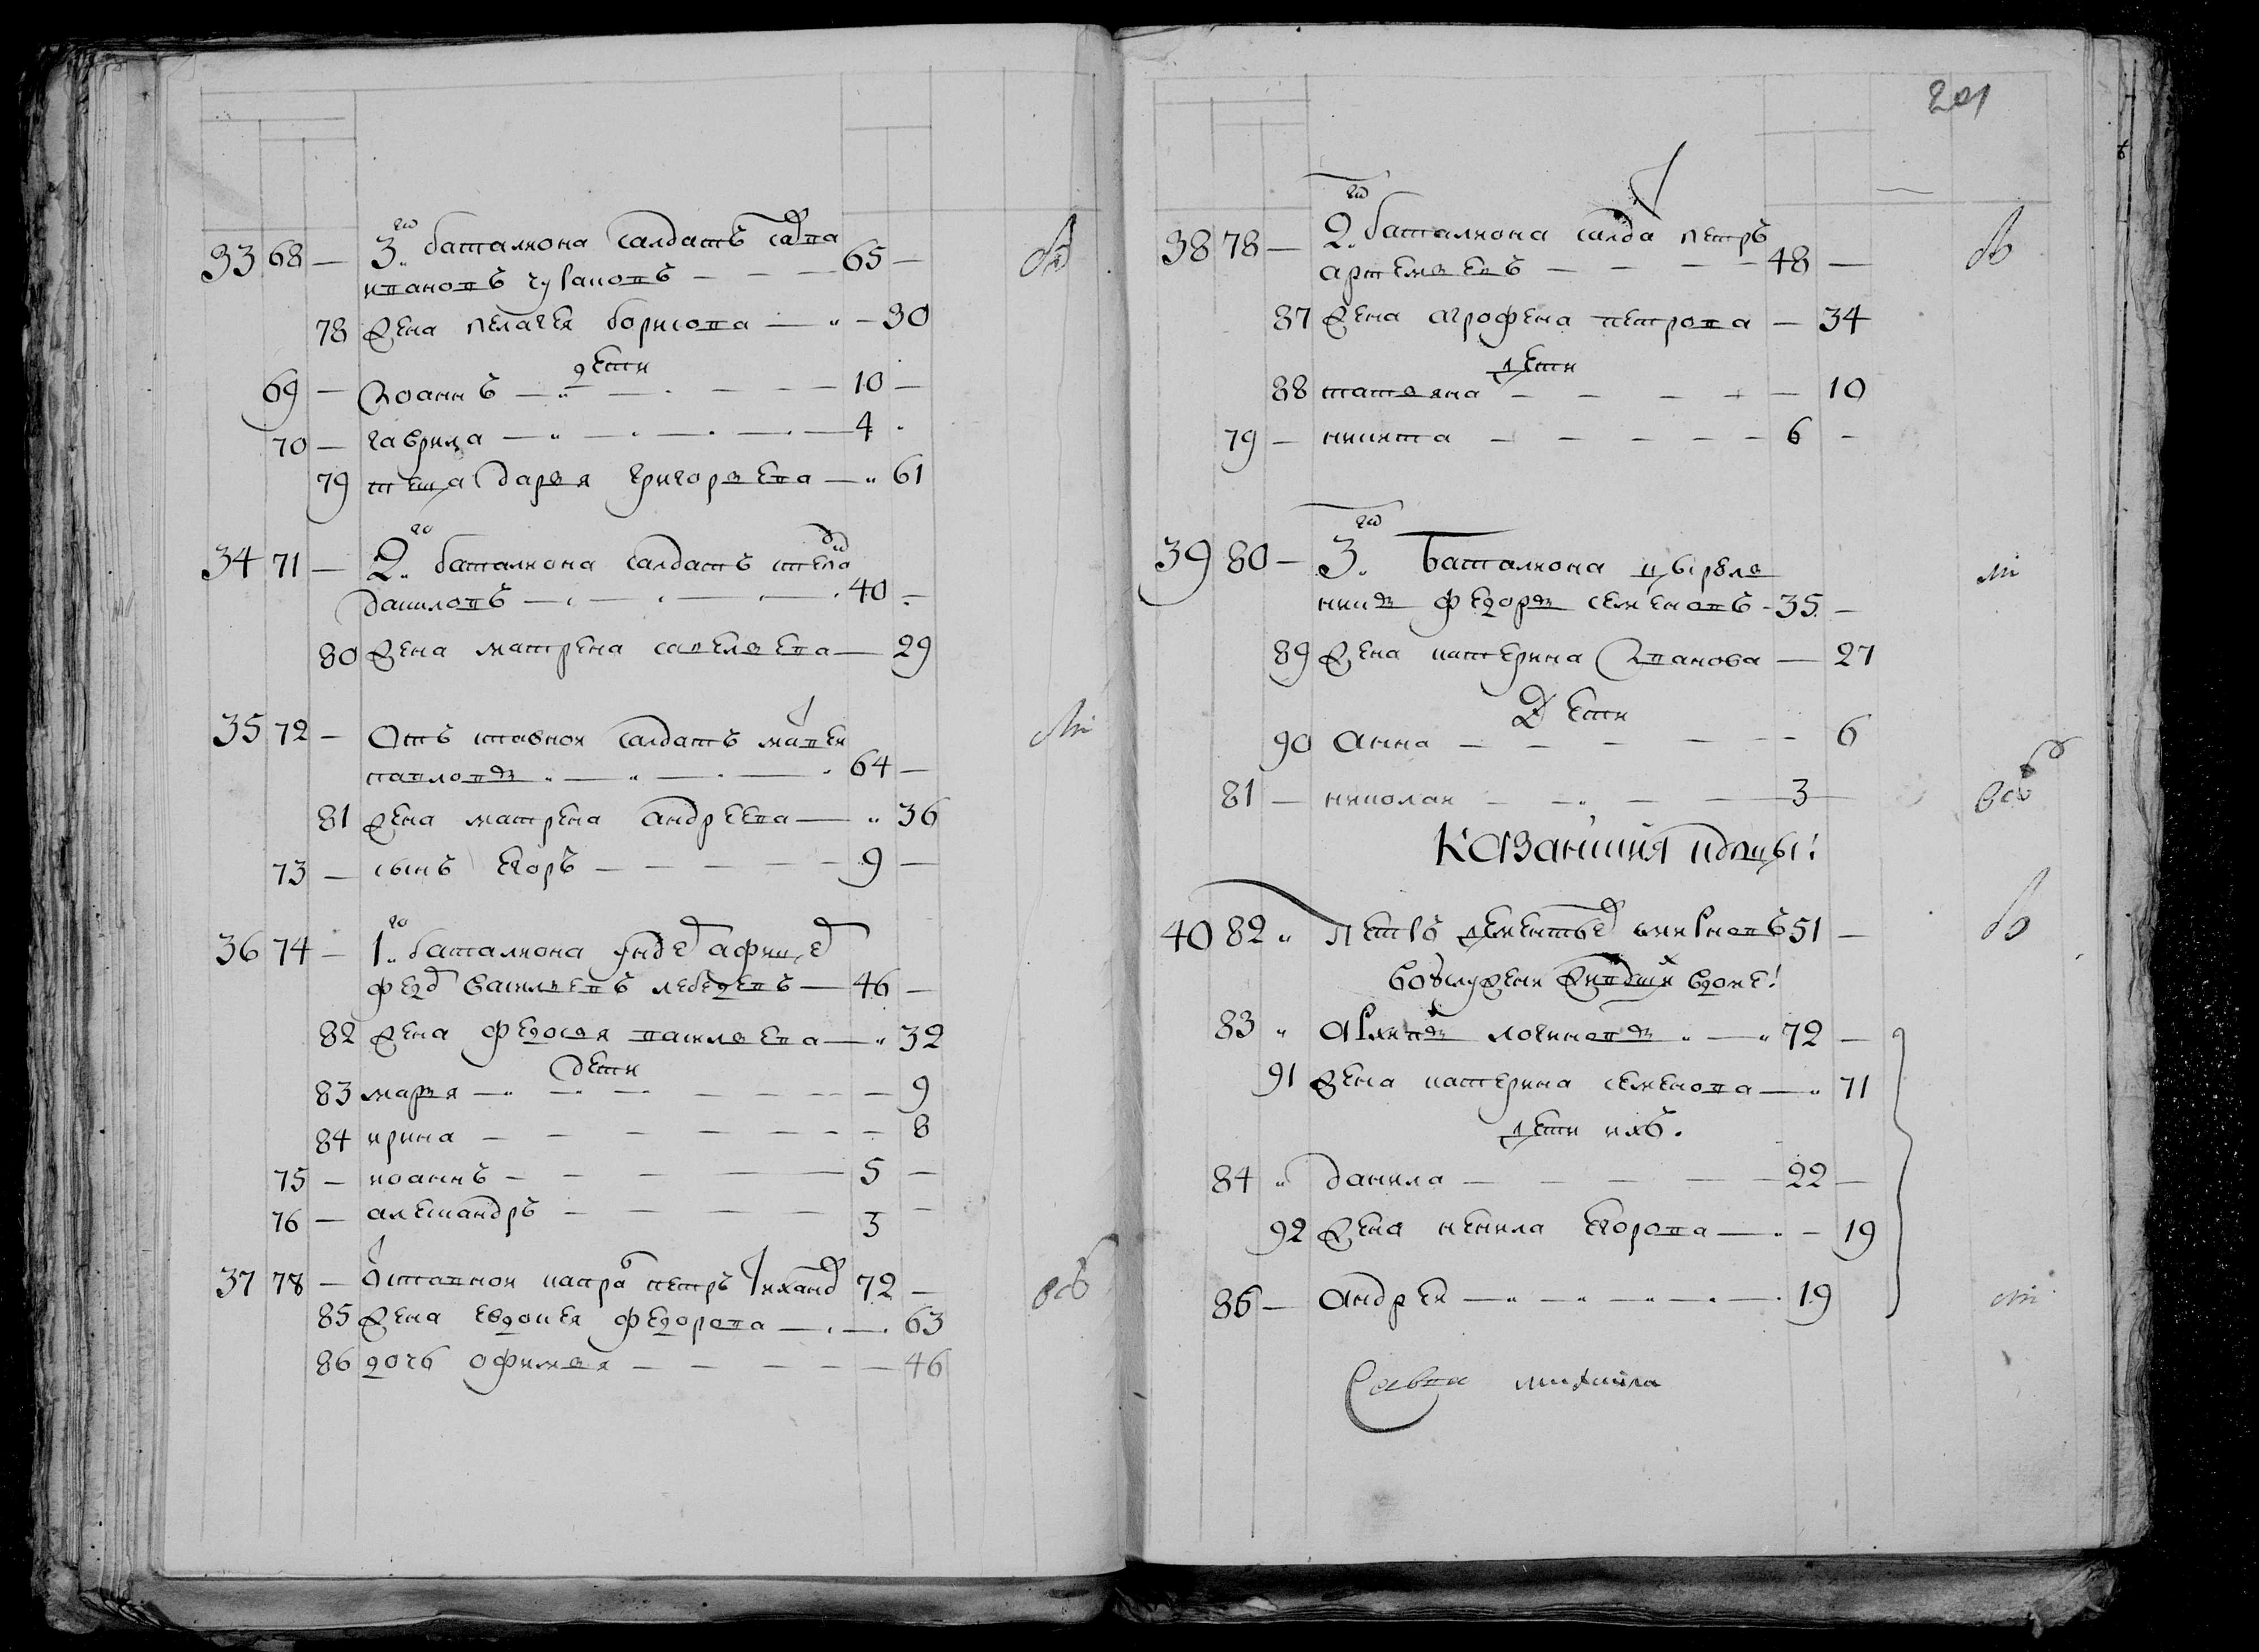 33 68 — 3.го баталиона салдатъ савва
ивановъ чураповъ — — — 65 —
78 жена пелагея борисова — „ — 30
дети
69 — Иоаннъ — „ — . — — — 10 —
70 — гаврила — „ — . — . — . — 4 .
79 теща Дарья григорьева — „ 61
34 71 — 2.го баталиона салдатъ
даниловъ — . — . — . — . 40 —
80 жена матрена савельева — 29
35 72 — Отъ ставнои салдатъ
павловъ „ — „ — . — . 64 —
81 жена матрена андреева — „ 36
73 — сынъ егоръ — — — — — 9 —
36 74 — 1.го баталиона унде афице
фед васильевъ лебедевъ — 46 —
82 жена федосья васильева — „ 32
дети
83 марья — „ — „ — — — — — 9
84 ирина — — — — — — — 8
75 — иоаннъ — — — — — 5 —
76 — александръ — — — — — 3 —
37 78 — Отставнои капра петръ 72 —
85 жена евдокея федорова — . — . 63
86 дочь офимья — — — — — 46
201
38 78 — 2.го баталиона салда петръ
артемьевъ — — — — 48 —
87 жена агрофена петрова — 34
дети
88 татьяна — — — — — 10
79 — никита — — — — — 6 —
39 80 — 3.го Баталиона цырюль
никъ федоръ семеновъ - 35 —
89 жена катерина Иванова — 27
Дети
90 анна — — — — — 6
81 — николаи — — . — — 3 —
казанския вдовцы:
40 82 „ Петръ дементье смирновъ 51 —
83 „ Архипъ логиновъ „ — „ 72 —
91 жена катерина семенова — „ 71
дети ихъ.
84 „ данила — — — — — 22 —
92 жена ненила егорова — . — 19
86 — андреи — „ — „ — „ — . — . 19
Савва михаила